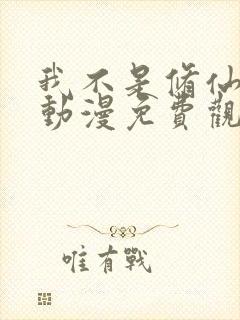 我不是脩仙
動漫免費觀
唯有戰